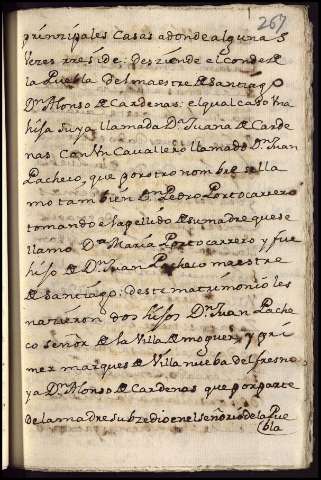 267
prinzipales casas adonde algunas
vezes rreside: desziende el conde de
la Puebla del maestre de santiago
Dn Alonso de Cardenas: el qual caso vna
hija suya llamada Da Juana de Carde
nas. Con vn Cavallero llamado Dn Juan
Pacheco, que por otro nombre se lla
mo tambien Dn Pedro Portocarrero
tomando el apellido de su madre que se
llamo Da Maria Portocarrero y fue
hijo de Dn Juan Pacheco maestre
de santiago: deste matrimonio les
nazieron dos hijos Dn Juan Pache
co señor de la Villa de moguer, y pri
mer marques de Villanueba del fresno
ya Dn Alonso de Cardenas que por parte
de la madre subzedio en el señorio de la Pue
bla